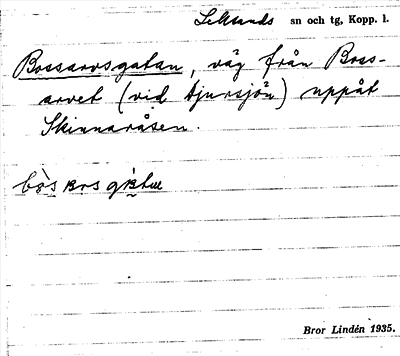 Leksands sn och tg, Kopp. l.
Bossarvsgatan, väg från Boss-
arvet (vid Djursjön) uppåt
Skinnaråsen.
Bror Lindén 1935.